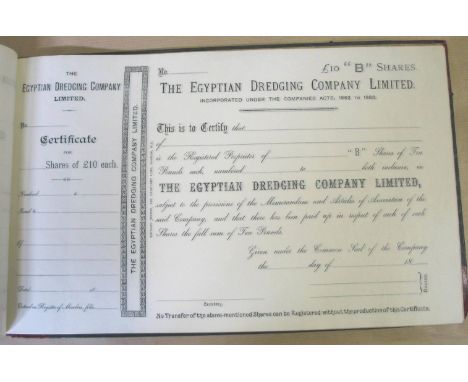 THE
EGYPTIAN DREDGING COMPANY
LIMITED.
No.
Certificate
FOR
Shares of £10 each.
Numbered to
Issued to
Of
Date 18
Entered on Register of Members, folio
THE EGYPTIAN DREDGING COMPANY LIMITED.
No. £10 "B" SHARES.
THE EGYPTIAN DREDGING COMPANY LIMITED.
INCORPORATED UNDER THE COMPANIES ACTS, 1862 TO 1883.
This is to Certify that
of
is the Registered Proprietor of "B" Shares of Ten
Pounds each, numbered to both inclusive, in
THE EGYPTIAN DREDGING COMPANY LIMITED,
subject to the provisions of the Memorandum and Articles of Association of the
said Company, and that there has been paid up in respect of each of such
Shares the full sum of Ten Pounds.
Given under the Common Seal of the Company
the day of 18
Directors
Secretary.
No Transfer of the above-mentioned Shares can be Registered without the production of this Certificate.